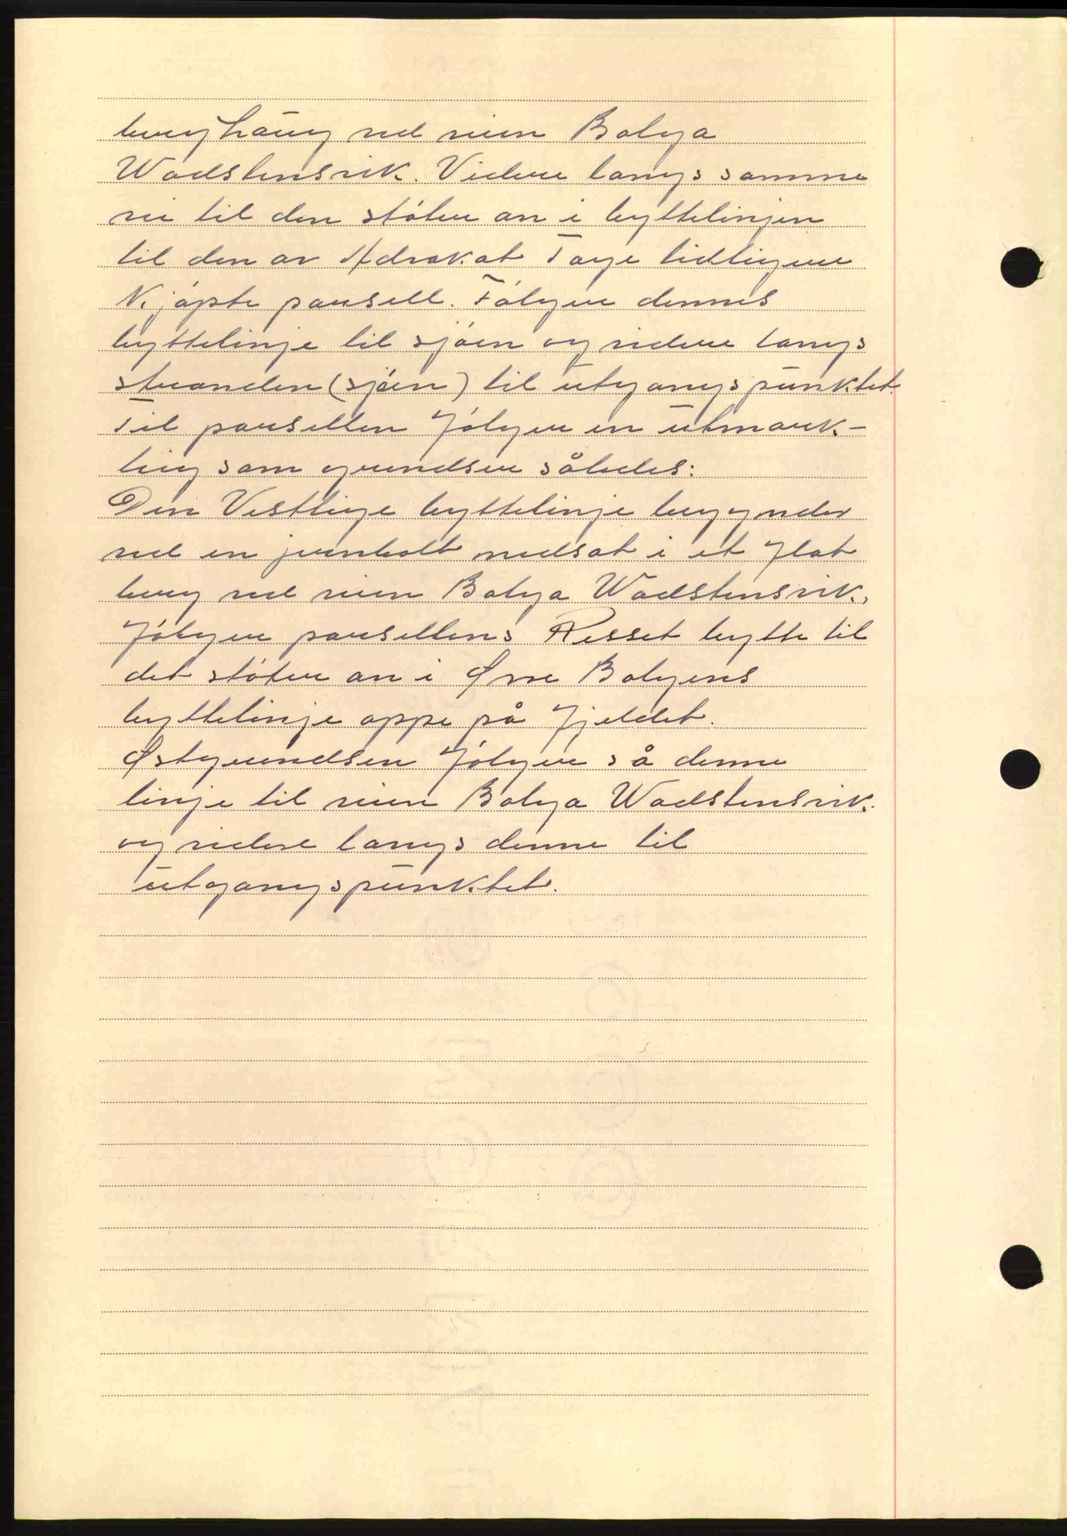 berghaug ved veien Bolga
Wadstensvik. Videre langs samme
vei til den støter an i byttelinjen
til den av Advokat Tarje tidligere
kjøpte parsell. Følger dennes
byttelinje til sjøen og videre langs
stranden (sjøen) til utgangspunktet.
Til parsellen følger en utmark-
teig som grendser således:
Den Vestlige byttelinje begynder
ved en jernbolt nedsat i et flat
berg ved veien Bolga Wadstensvik,
følger parsellens Resset bytte til
det støter an i Øvre Bolgens
byttelinje oppe på fjeldet.
Østgrendsen følger så denne
linje til veien Bolga Wadstensvik.
og videre langs denne til
utgangspunktet.